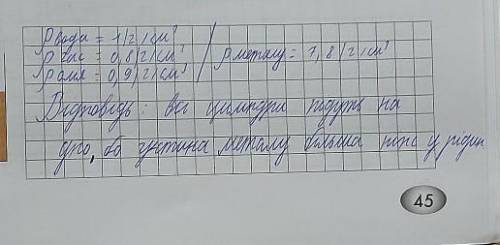 ρ вода = 1 г/см³
ρ гас = 0,8 г/см³ / ρ металу = 7,8 г/см³
ρ олія = 0,9 г/см³
Відповідь: всі циліндри підуть на
дно, бо густина металу більша ніж у рідин
45